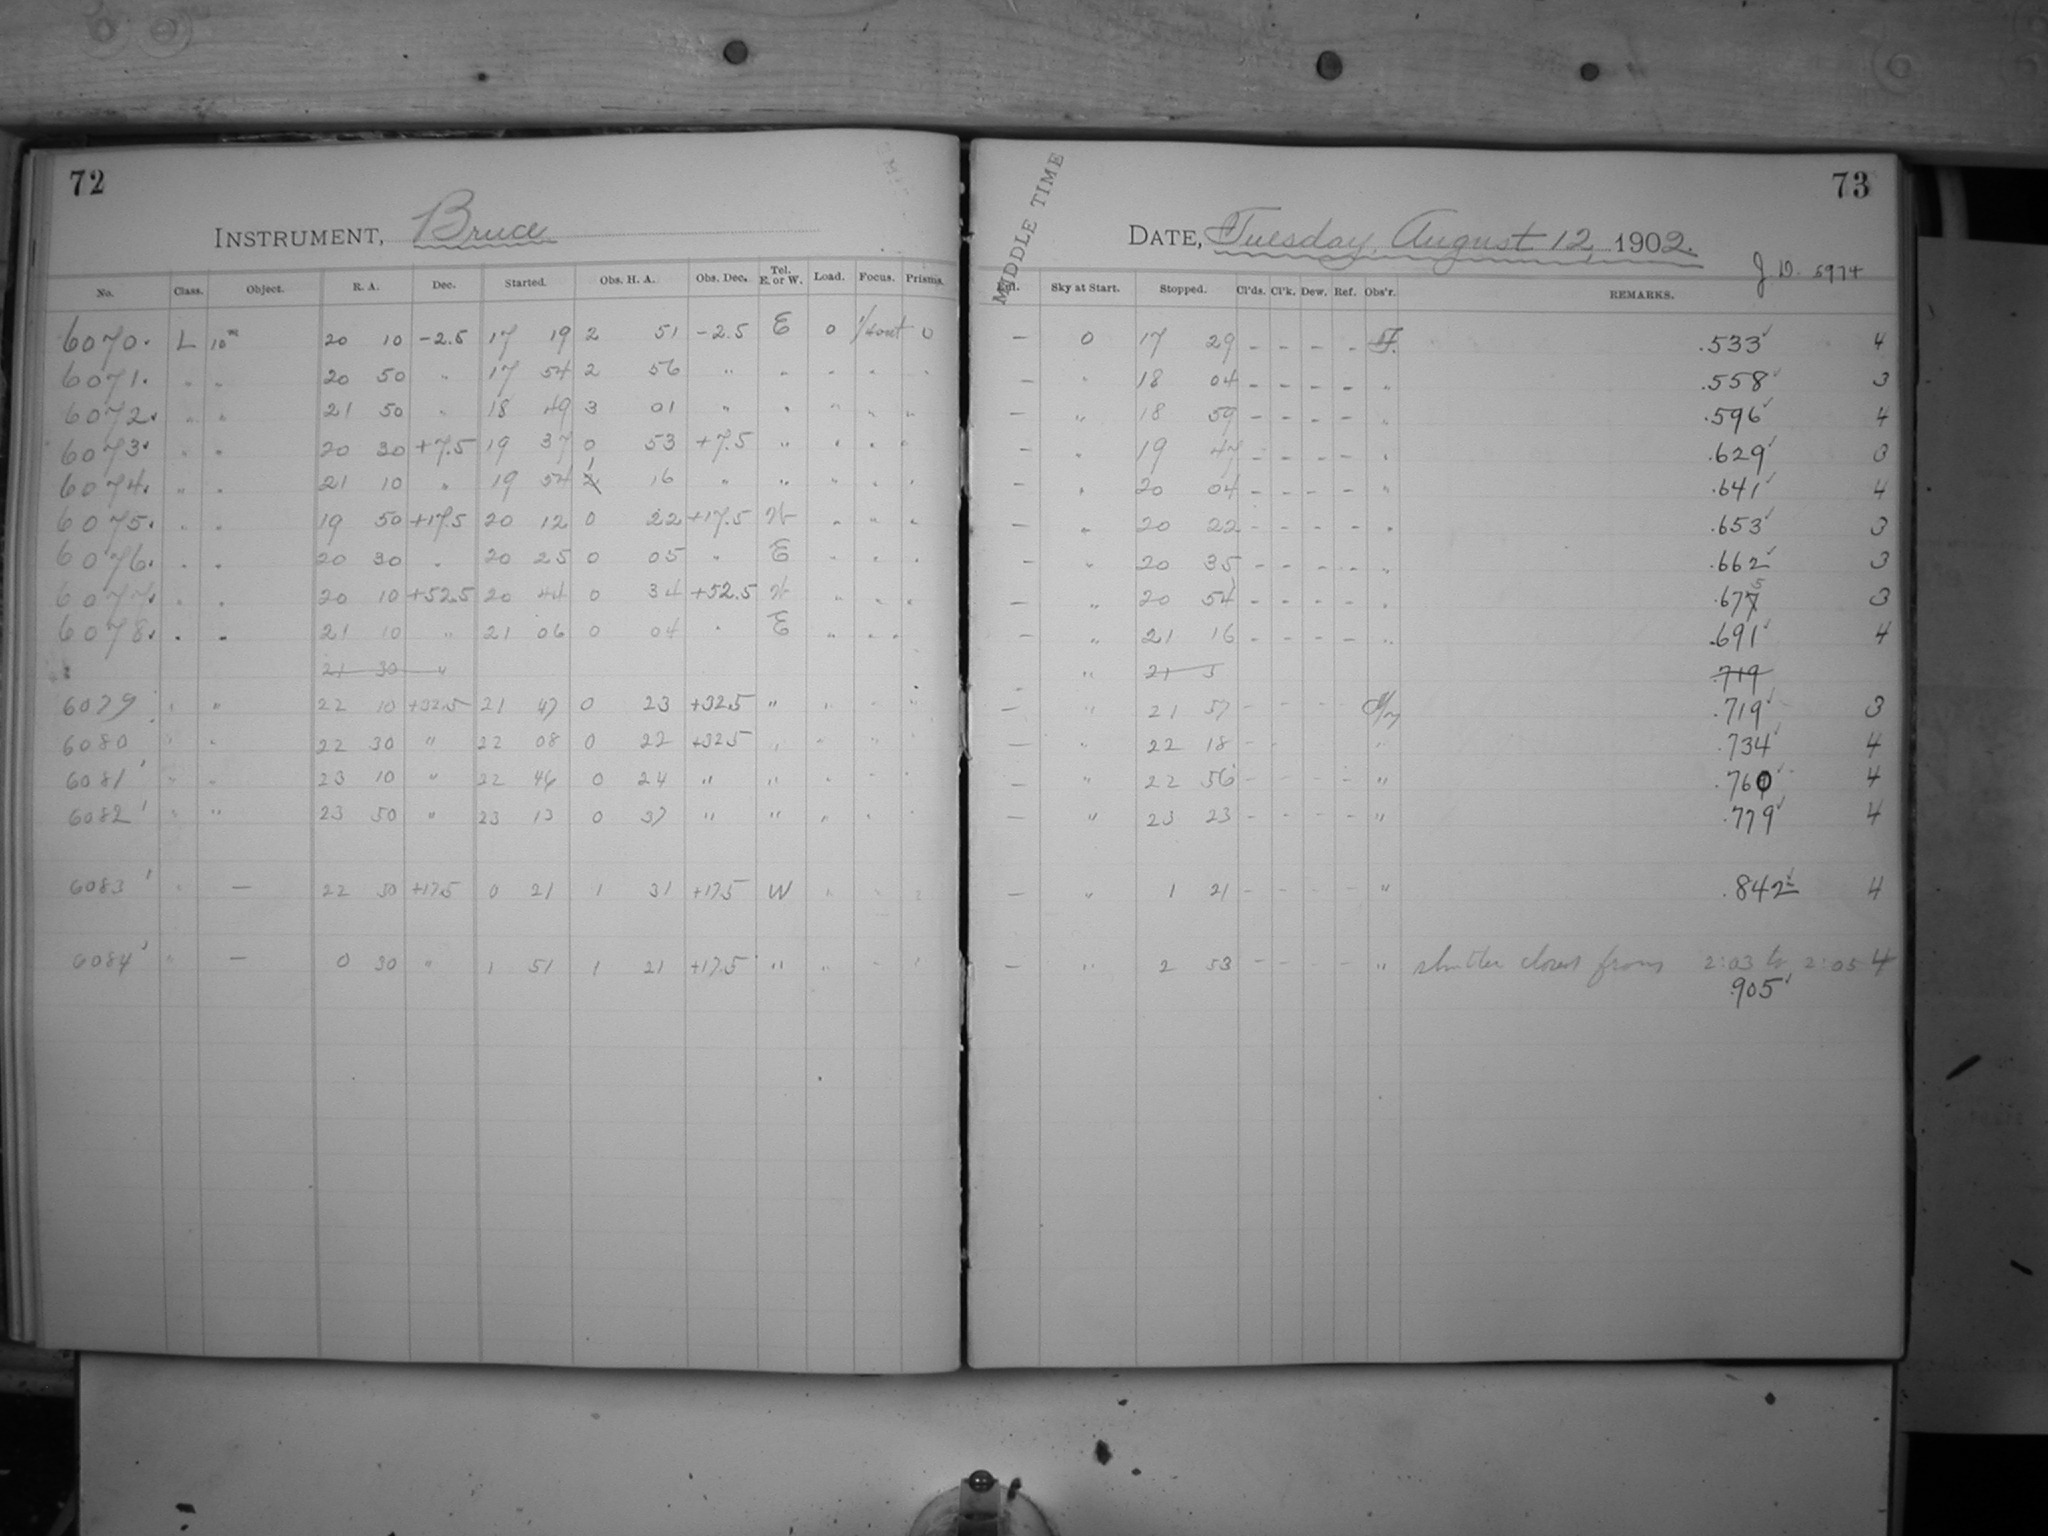 72
INSTRUMENT, Bruce
No. Class. Object. R. A. Dec. Started. Obs. H. A. Obs. Dec. Tel. E. or W. Load. Focus. Prisms.
6070. L 10m 20 10 -2.5 17 19 2 51 -2.5 E 0 0
6071. " " 20 50 " 17 54 2 56 " " " " "
6072. " " 21 50 " 18 49 3 01 " " " " "
6073. " " 20 30 +7.5 19 37 0 53 +7.5 " " " "
6074. " " 21 10 " 19 54 1 16 " " " " "
6075. " " 19 50 +17.5 20 12 0 22 +17.5 W " " "
6076. " " 20 30 " 20 25 0 05 " E " " "
6077. " " 20 10 +52.5 20 44 0 34 +52.5 W " " "
6078. " " 21 10 " 21 06 0 04 " E " " "
21 30 "
6079 " " 22 10 +32.5 21 47 0 23 +32.5 " " " "
6080 " " 22 30 " 22 08 0 22 +32.5 " " " "
6081 " " 23 10 " 22 46 0 24 " " " " "
6082 " " 23 50 " 23 13 0 37 " " " " "
6083 " — 22 30 +17.5 0 21 1 31 +17.5 W " " "
6084 " — 0 30 " 1 51 1 21 +17.5 " " " "
73
MIDDLE TIME
DATE, Tuesday, August 12, 1902.
J. D. 5974
Sky at Start. Stopped. Cl'ds. Cl'k. Dew. Ref. Obs'r. REMARKS.
– 0 17 29 – – – – .533 4
– " 18 04 – – – – " .558 3
– " 18 59 – – – – " .596 4
– " 19 47 – – – – " .629 3
– " 20 04 – – – – " .641 4
– " 20 22 – – – – " .653 3
– " 20 35 – – – – " .662 3
– " 20 54 – – – – " .675 3
– " 21 16 – – – – " .691 4
" 21 5 .719
– " 21 57 – – – – .719 3
– " 22 18 – – " .734 4
– " 22 56 – – – – " .760 4
– " 23 23 – – – – " .779 4
– " 1 21 – – – – " .842 4
– " 2 53 – – – – " shutter closed from 2:03 to 2:05 4
.905